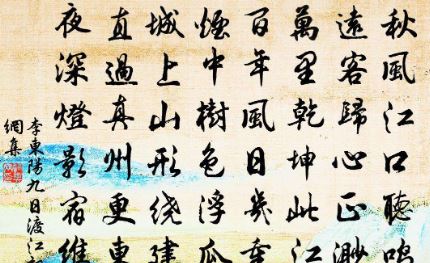 秋風江口聽鳴
遠客歸心正渺
萬里乾坤此江
百年風日幾重
煙中樹色浮瓜
城上山形繞建
直過真州更東
夜深燈影宿維
李東陽九日渡江
網集